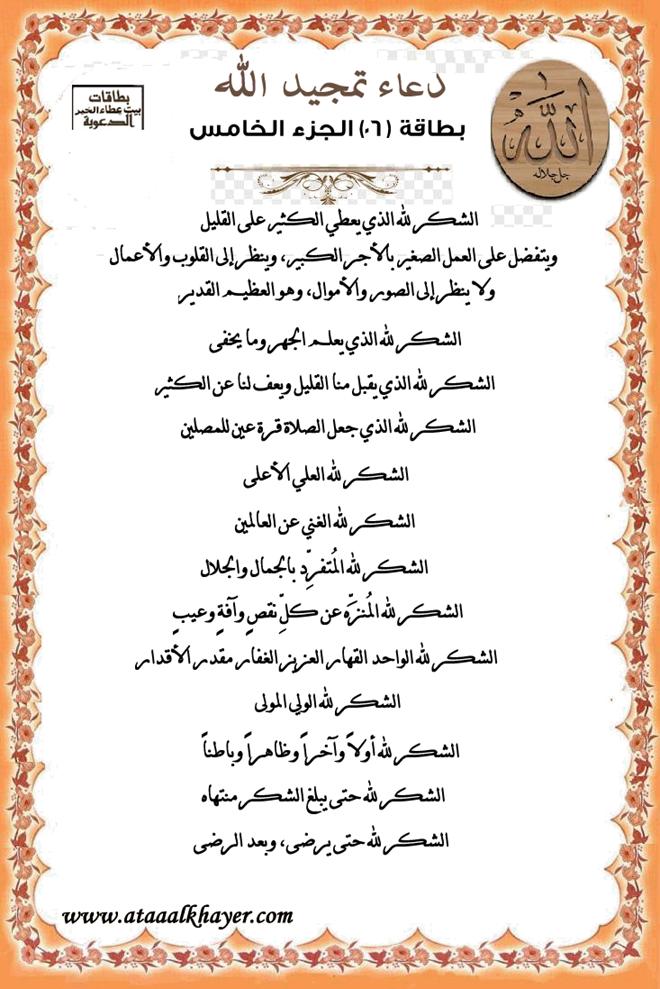 دعاء تمجيد الله
بطاقة (٠٦) الجزء الخامس
بطاقات
بيت عطاء الخير
الدعوية
الله
جل جلاله
الشكر لله الذي يعطي الكثير على القليل
ويتفضل على العمل الصغير بالأجر الكبير، وينظر إلى القلوب والأعمال
ولا ينظر إلى الصور والأموال، وهو العظيم القدير
الشكر لله الذي يعلم الجهر وما يخفى
الشكر لله الذي يقبل منا القليل ويعف لنا عن الكثير
الشكر لله الذي جعل الصلاة قرة عين للمصلين
الشكر لله العلي الأعلى
الشكر لله الغني عن العالمين
الشكر لله المُتفرِّد بالجمال والجلال
الشكر لله المُنزَّه عن كلِّ نقصٍ وآفةٍ وعيبٍ
الشكر لله الواحد القهار العزيز الغفار مقدر الأقدار
الشكر لله الولي المولى
الشكر لله أولاً وآخراً وظاهراً وباطناً
الشكر لله حتى يبلغ الشكر منتهاه
الشكر لله حتى يرضى، وبعد الرضى
www.ataaalkhayer.com